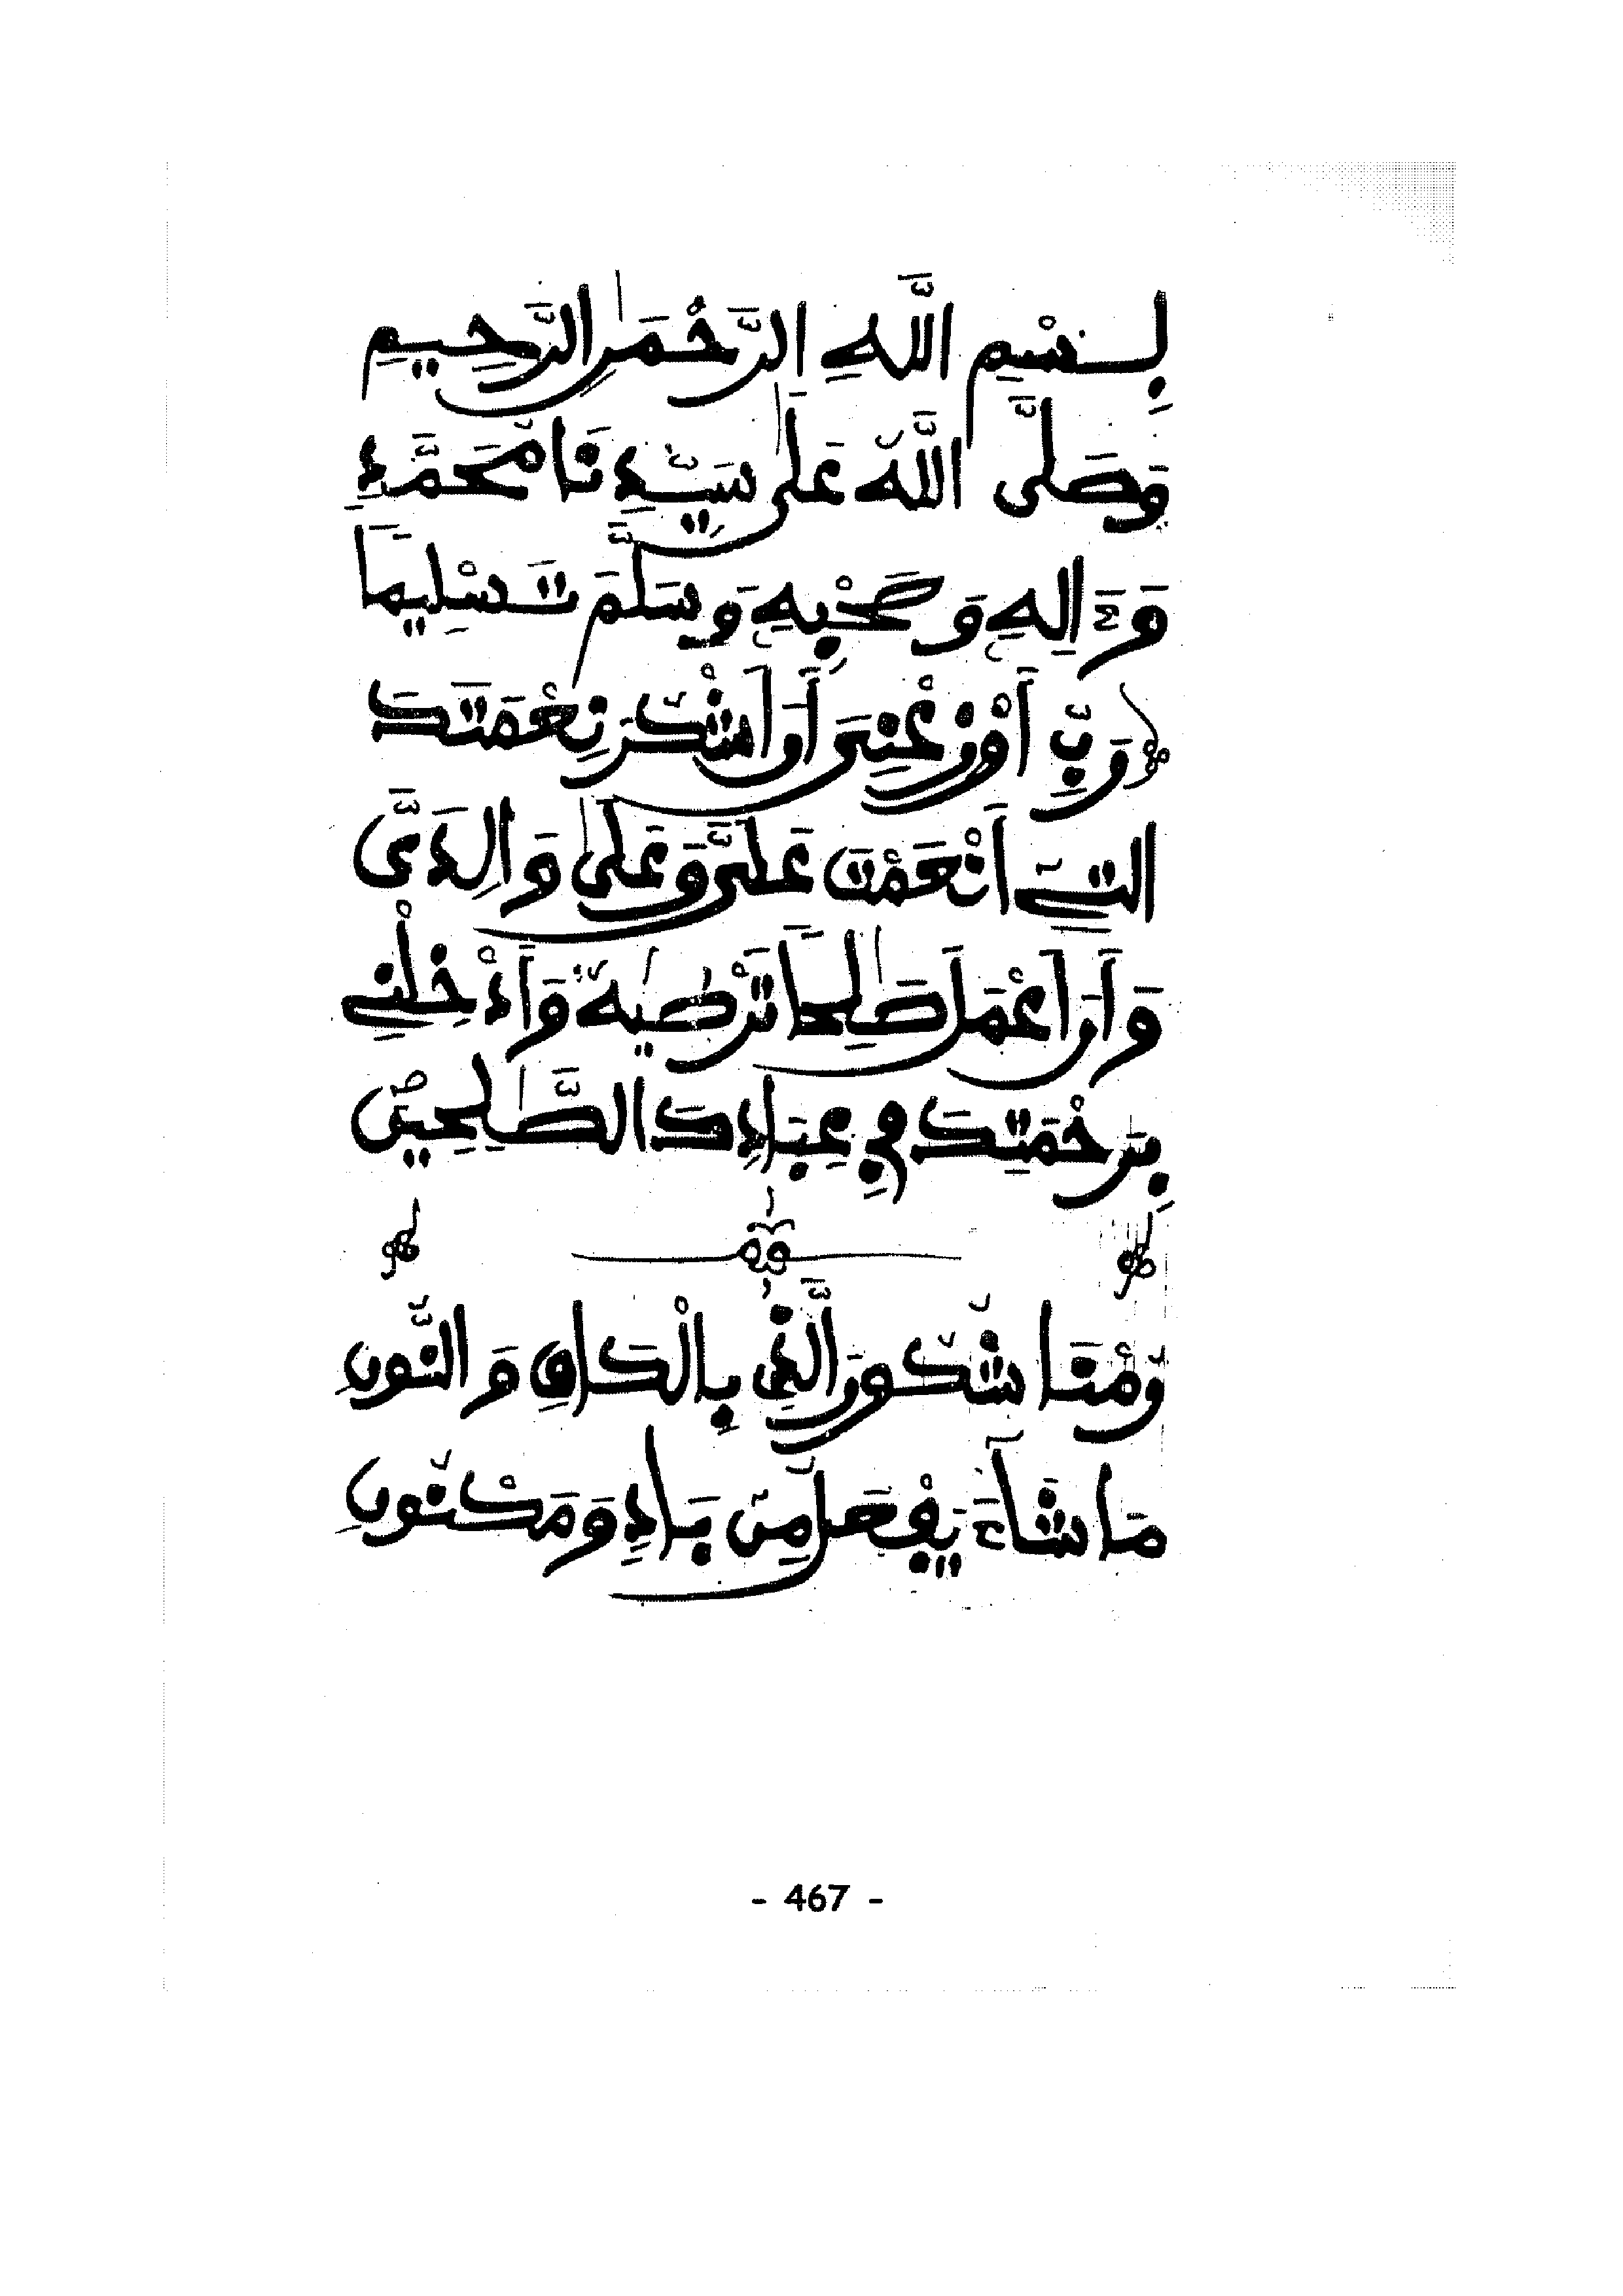 بِسْمِ اللَّهِ الرَّحْمَٰنِ الرَّحِيمِ
وَصَلَّى اللَّهُ عَلَىٰ سَيِّدِنَا مُحَمَّدٍ
وَءَالِهِ وَصَحْبِهِ وَسَلَّمَ تَسْلِيمًا
رَبِّ أَوْزِعْنِي أَنْ أَشْكُرَ نِعْمَتَكَ
الَّتِي أَنْعَمْتَ عَلَيَّ وَعَلَىٰ وَالِدَيَّ
وَأَنْ أَعْمَلَ صَٰلِحًا تَرْضَيٰهُ وَأَدْخِلْنِي
بِرَحْمَتِكَ فِي عِبَادِكَ الصَّٰلِحِينَ
وَمُنَا شَكُورَ الَّذِي بِالْكَافِ وَالنُّونِ
مَا شَاءَ يَفْعَلُ مِنْ بَادٍ وَمَكْنُونِ
- 467 -